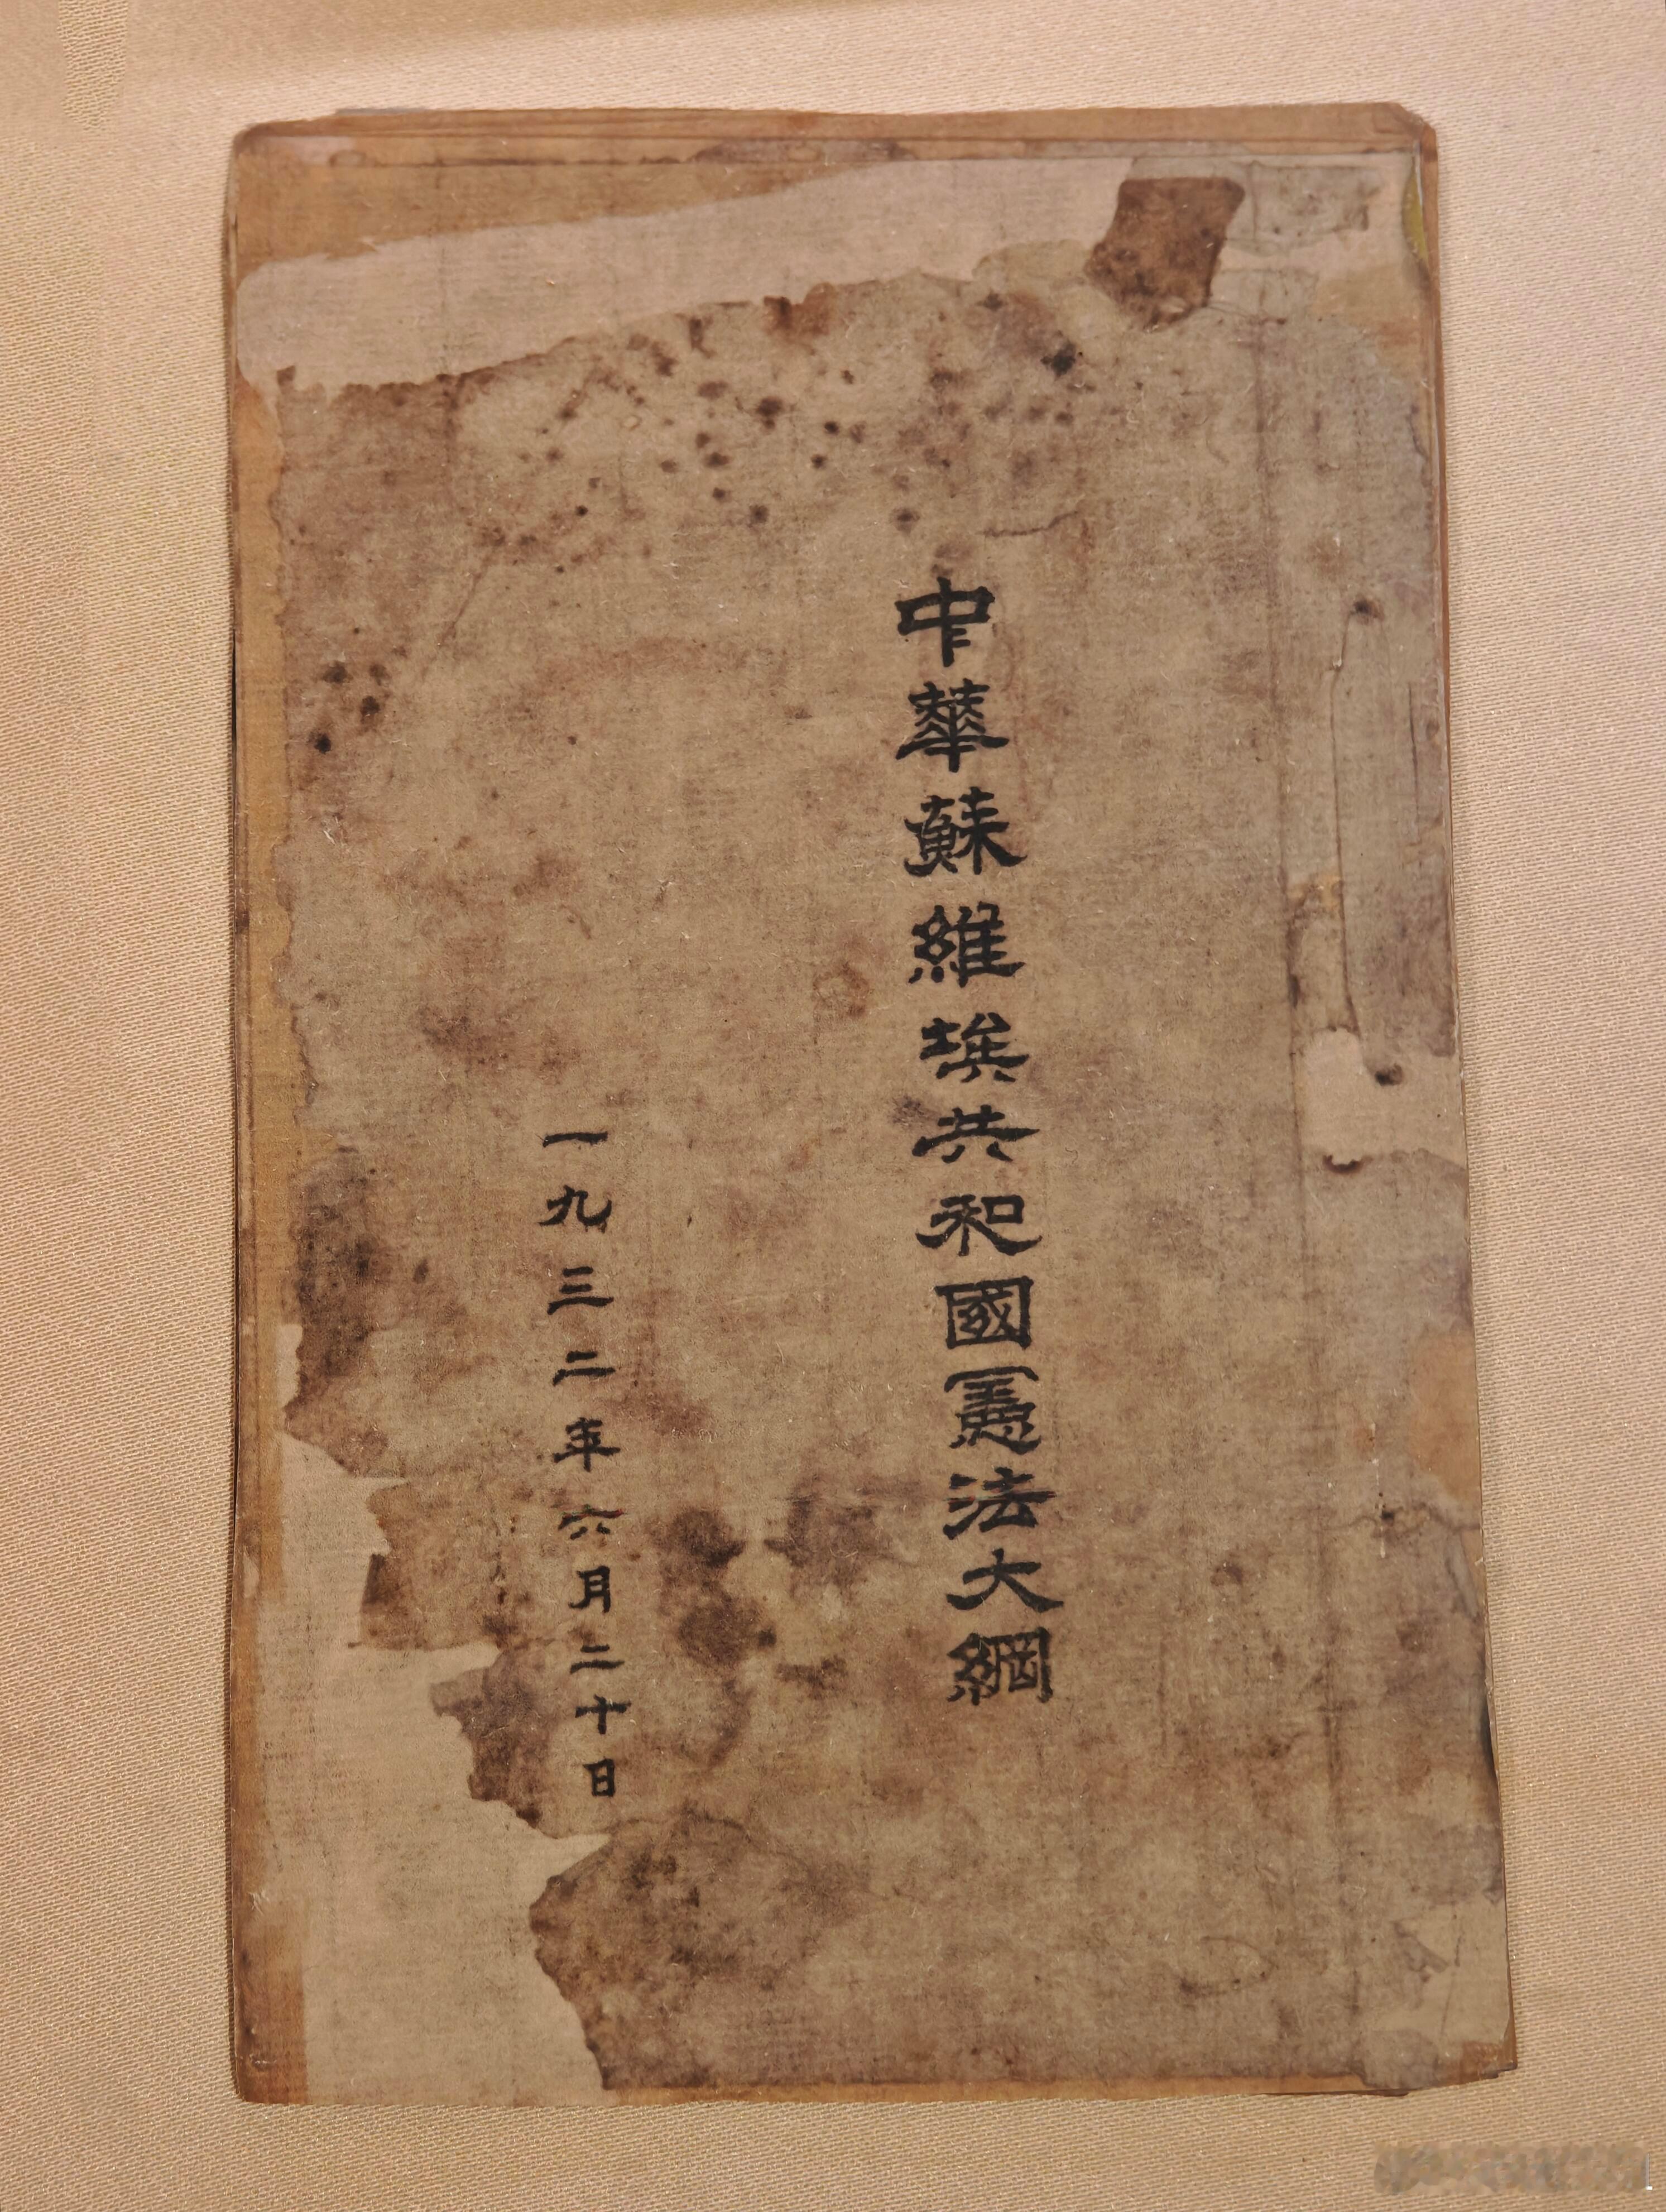 中華蘇維埃共和國憲法大綱
一九三二年六月二十日